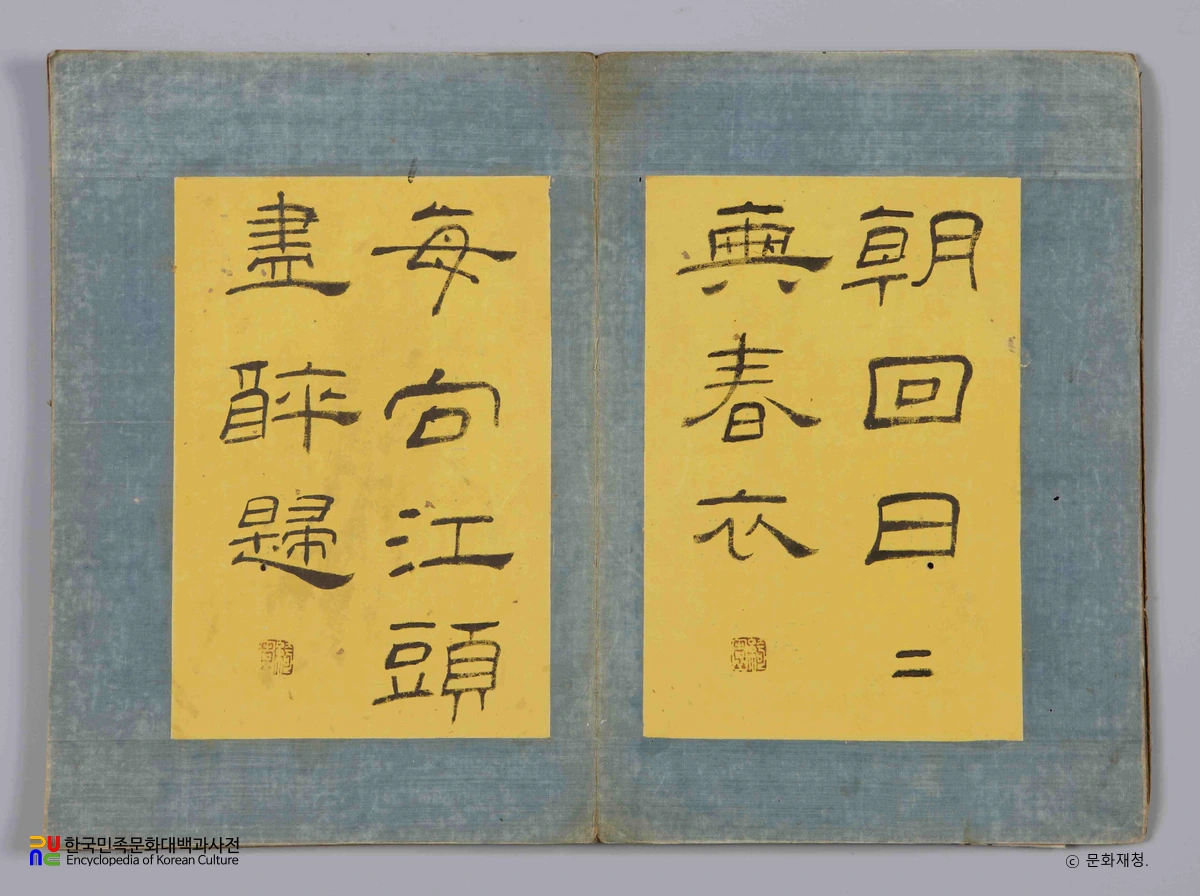 朝回日二
典春衣
每向江頭
盡醉歸
한국민족문화대백과사전
Encyclopedia of Korean Culture
ⓒ 문화재청.